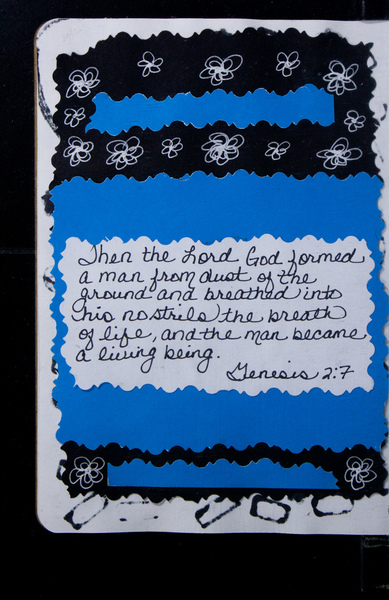 Then the Lord God formed
a man from dust of the
ground and breathed into
his nostrils the breath
of life, and the man became
a living being.
Genesis 2:7